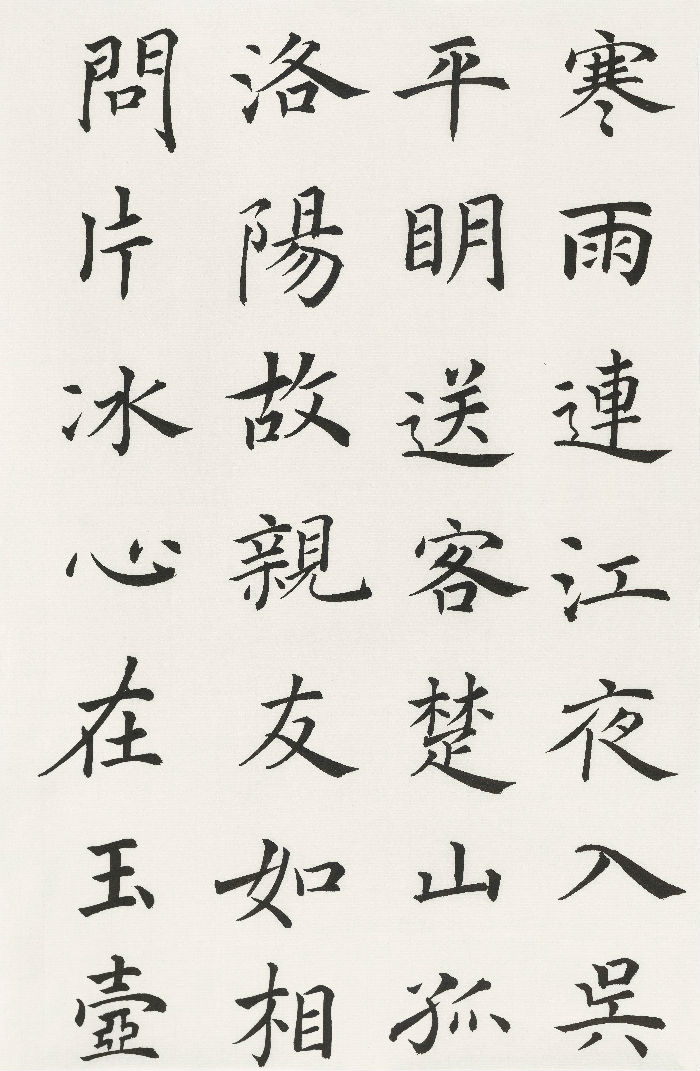 寒雨連江夜入吳
平明送客楚山孤
洛陽故親友如相
問片冰心在玉壺